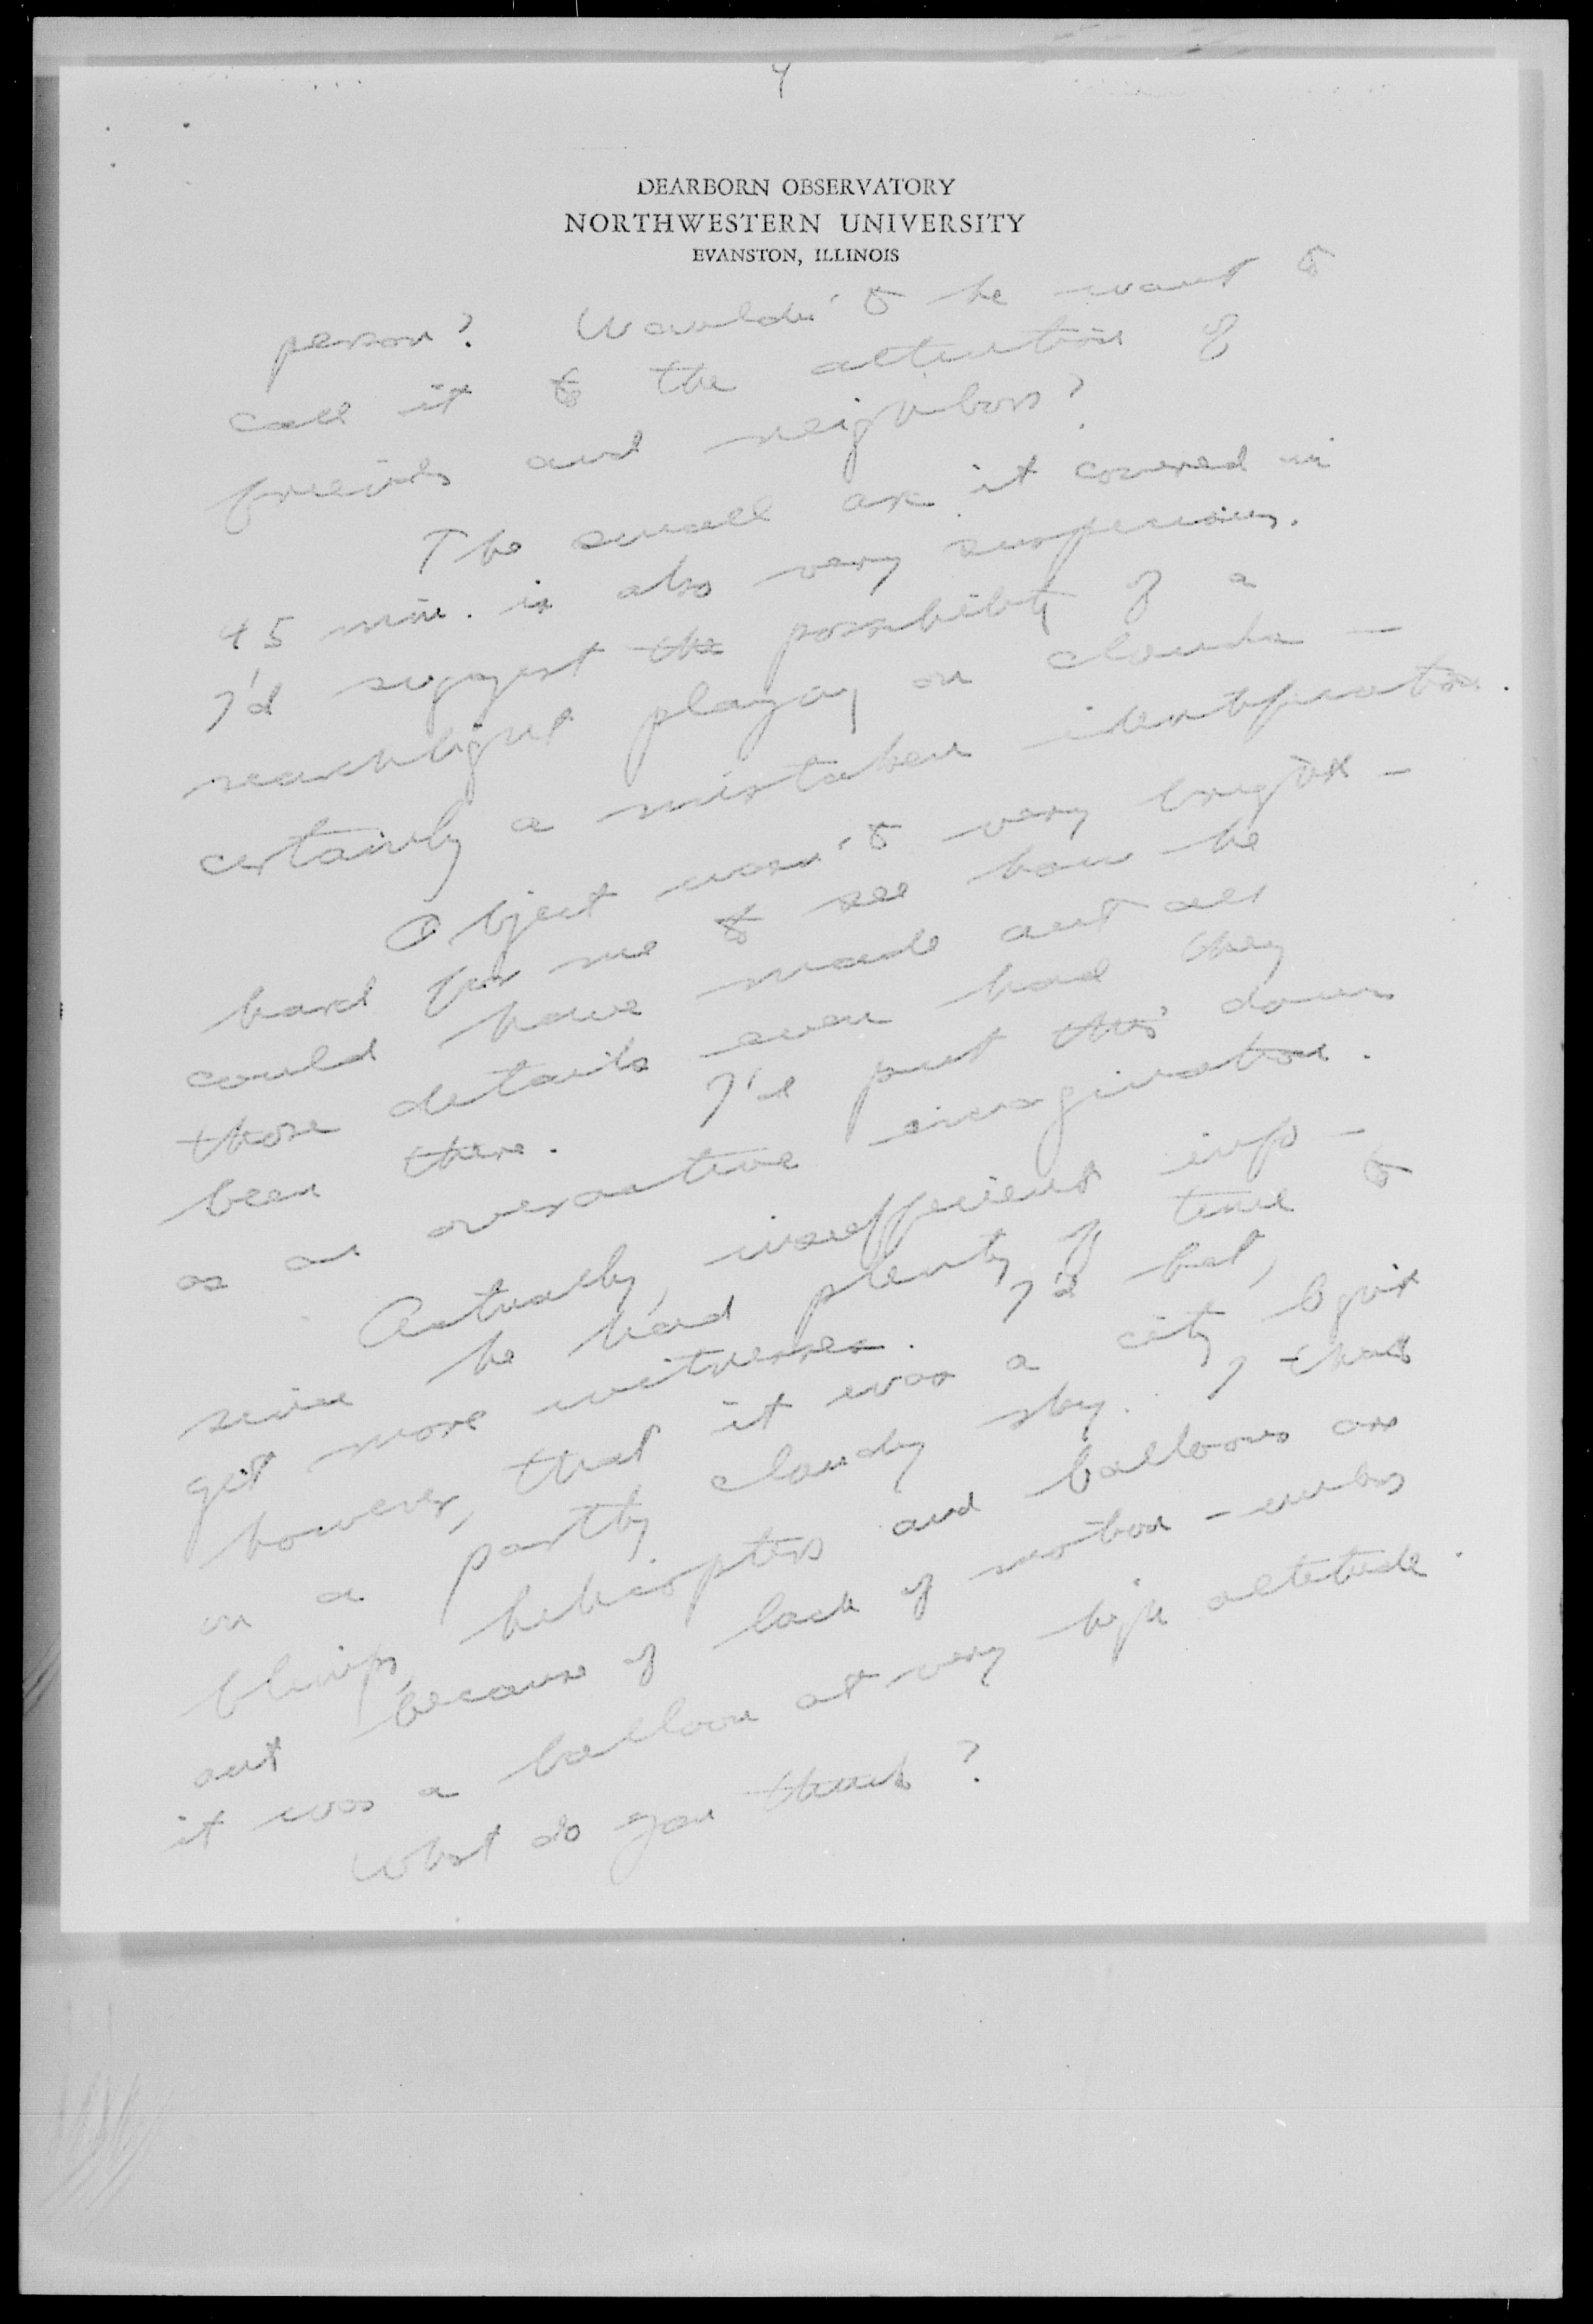 4
DEARBORN OBSERVATORY
NORTHWESTERN UNIVERSITY
EVANSTON, ILLINOIS
person? Wouldn't he want to
call it to the attention of
friends and neighbors?
The small arc it covered in
45 min. is also very suspicious.
I'd suggest the possibility of a
searchlight playing on clouds —
certainly a mistaken identification.
Object wasn't very bright —
hard for me to see how he
could have made out all
those details even had they
been there. I'd put this down
as an overactive imagination.
Actually, insufficient info —
since he had plenty of time to
get more witnesses. I'd bet,
however, that it was a city light
on a partly cloudy sky. I think
blimps, helicopters and balloons are
out because of lack of motion - unless
it was a balloon at very high altitude.
What do you think?